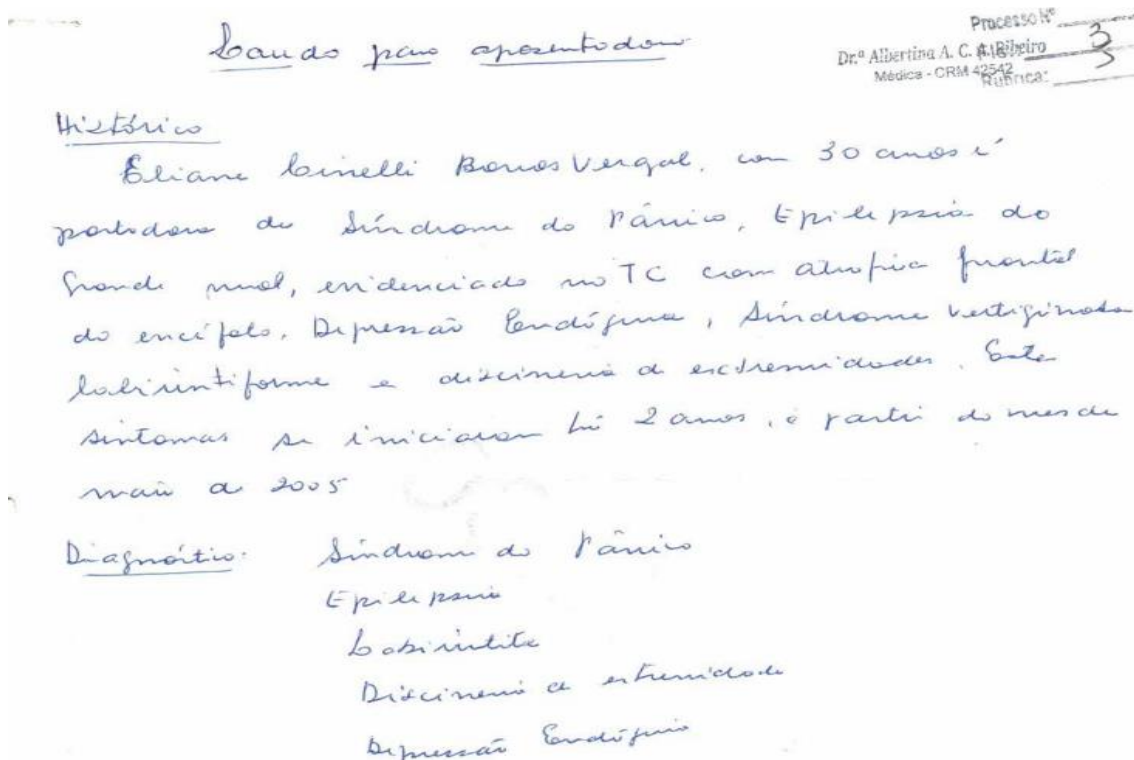 Laudo para aposentadoria
Processo Nº
Dr.ª Albertina A. C. A. Ribeiro 3
Médica - CRM 42542
Rubrica:
Histórico
Eliane Cinelli Barros Vergal, com 30 anos é
portadora de Síndrome do Pânico, Epilepsia do
Grande mal, evidenciado no TC com atrofia frontal
do encéfalo, Depressão Endógena, Síndrome Vertiginosa
labirintiforme e discinesia de extremidades. Estes
sintomas se iniciaram há 2 anos, à partir do mes de
maio de 2005
Diagnóstico: Síndrome do Pânico
Epilepsia
Labirintite
Discinesia de extremidade
Depressão Endógena